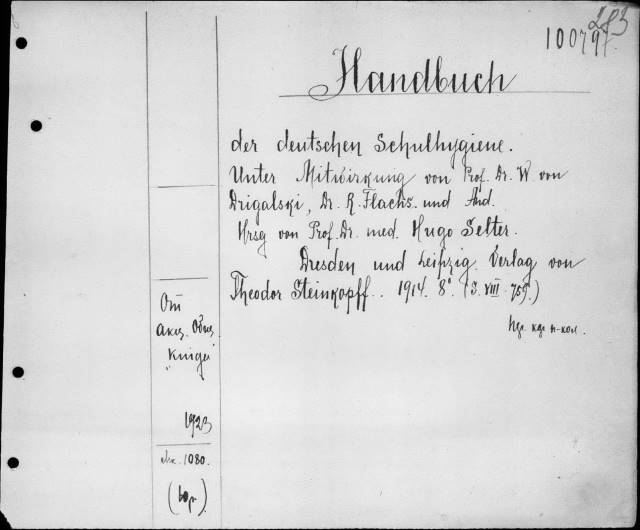 283
10079
Handbuch
der deutschen Schulhygiene.
Unter Mitwirkung von Prof. Dr. W. von
Drigalski, Dr. R. Flachs. und And.
Hrsg von Prof. Dr. med. Hugo Selter.
Dresden und Leipzig. Verlag von
Theodor Steinkopff.. 1914. 8°. (S. VIII. 759.)
От
акц. Общ.
"Книга"
1923
1080.